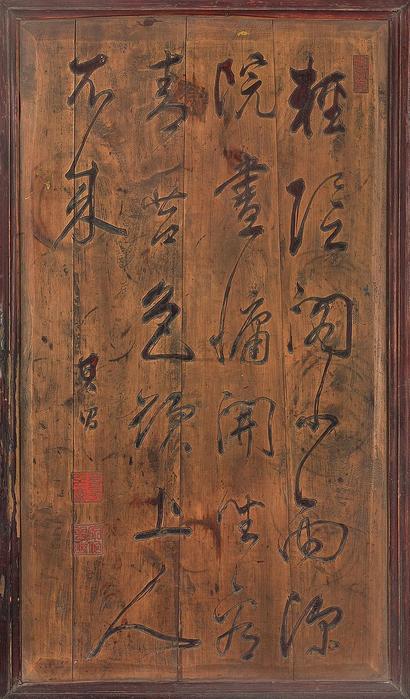 輕陰閣小雨深
院晝慵開坐看
青苔色欲上人
衣來
其昌